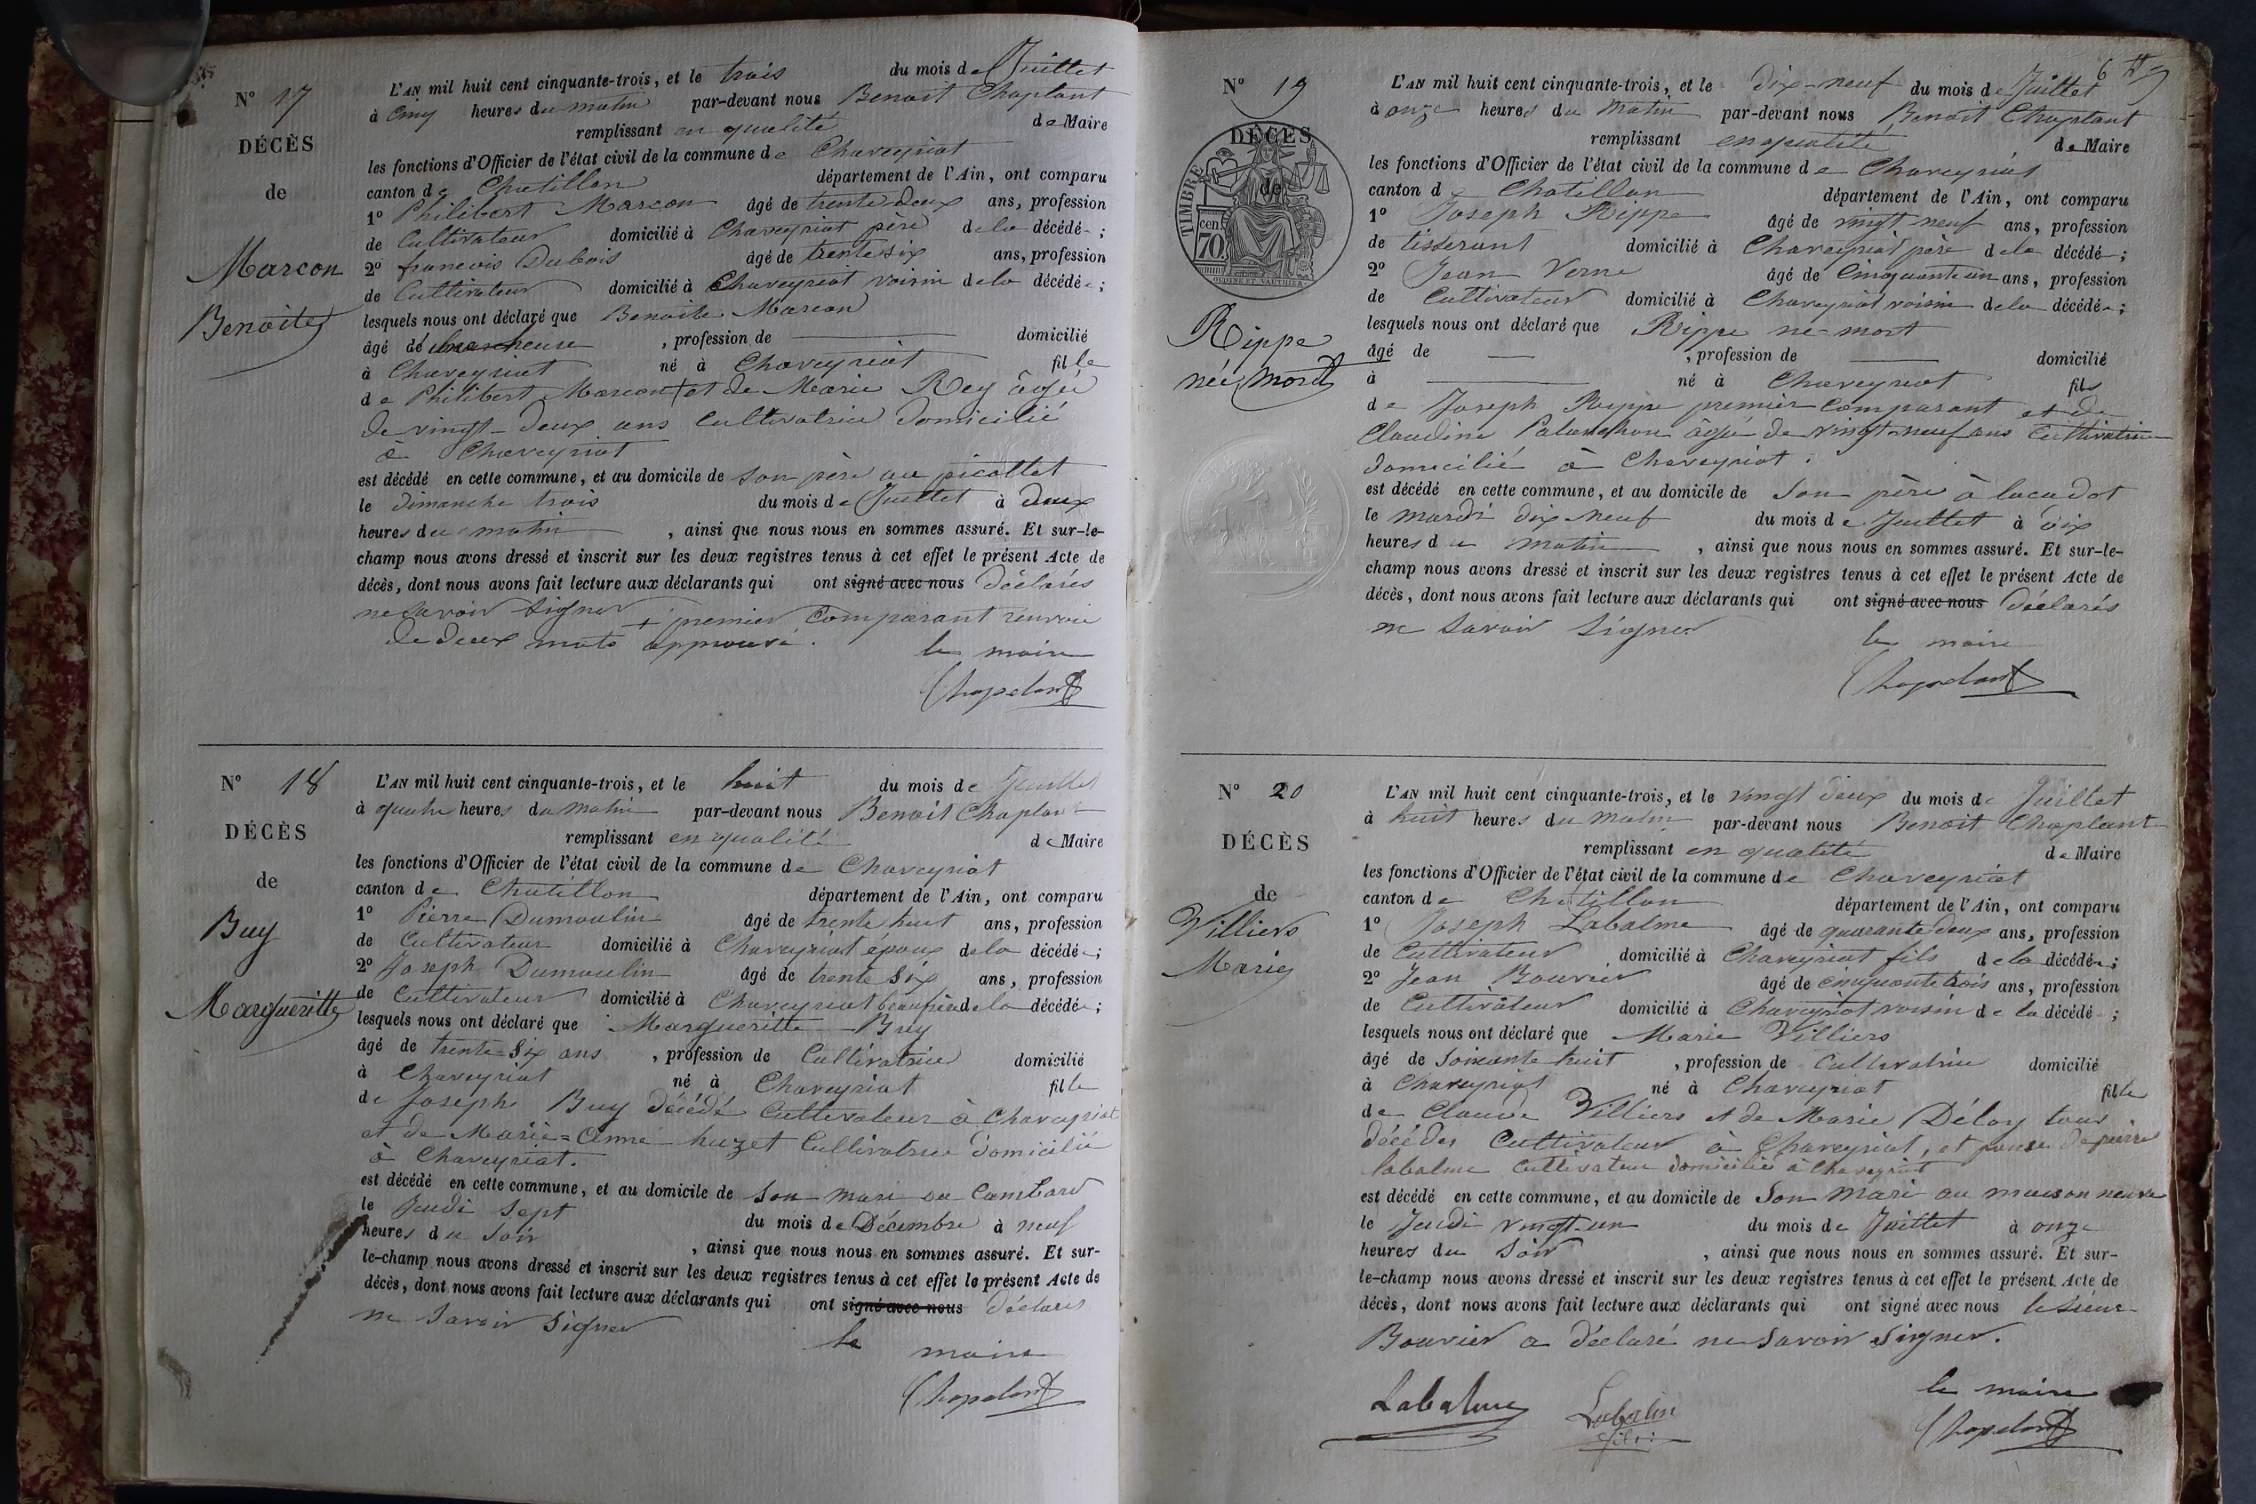 N° 17
DÉCÈS
de
Marcon
Benoite
L'AN mil huit cent cinquante-trois, et le trois du mois de Juillet
à Cinq heures du matin par-devant nous Benoit Chaplant
remplissant en qualité de Maire
les fonctions d'Officier de l'état civil de la commune de Chaveyriat
canton de Chatillon département de l'Ain, ont comparu
1° Philibert Marcon âgé de trente deux ans, profession
de Cultivateur domicilié à Chaveyriat père de la décédée ;
2° francois Dubois âgé de trente six ans, profession
de Cultivateur domicilié à Chaveyriat voisin de la décédée ;
lesquels nous ont déclaré que Benoite Marcon
âgé de heure , profession de domicilié
à Chaveyriat né à Chaveyriat fille
de Philibert Marcon + et de Marie Rey âgée
de vingt-deux ans Cultivatrice Domicilié
à Chaveyriat
est décédé en cette commune, et au domicile de son père au picollet
le dimanche trois du mois de Juillet à deux
heures du matin , ainsi que nous nous en sommes assuré. Et sur-le-
champ nous avons dressé et inscrit sur les deux registres tenus à cet effet le présent Acte de
décès, dont nous avons fait lecture aux déclarants qui ont signé avec nous déclarés
ne savoir signer + premier Comparant renvoie
de deux mots approuvé.
le maire
Chapelant
N° 18
DÉCÈS
de
Buy
Margueritte
L'AN mil huit cent cinquante-trois, et le huit du mois de Juillet
à quatre heures du matin par-devant nous Benoit Chaplant
remplissant en qualité de Maire
les fonctions d'Officier de l'état civil de la commune de Chaveyriat
canton de Chatillon département de l'Ain, ont comparu
1° Pierre Dumoulin âgé de trente huit ans, profession
de Cultivateur domicilié à Chaveyriat époux de la décédée ;
2° Joseph Dumoulin âgé de trente six ans, profession
de Cultivateur domicilié à Chaveyriat beau frère de la décédée ;
lesquels nous ont déclaré que Margueritte Buy
âgé de trente-six ans , profession de Cultivatrice domicilié
à Chaveyriat né à Chaveyriat fille
de Joseph Buy décédé Cultivateur à Chaveyriat
et de Marie=Anne huzet Cultivatrice domicilié
à Chaveyriat.
est décédé en cette commune, et au domicile de son mari au Cambard
le Jeudi sept du mois de Décembre à neuf
heures du soir , ainsi que nous nous en sommes assuré. Et sur-
le-champ nous avons dressé et inscrit sur les deux registres tenus à cet effet le présent Acte de
décès, dont nous avons fait lecture aux déclarants qui ont signé avec nous déclarés
ne savoir signer
le maire
Chapelant
6
N° 19
DÉCÈS
de
TIMBRE
cen. 70
Rippe
née mort
L'AN mil huit cent cinquante-trois, et le dix-neuf du mois de Juillet
à onze heures du matin par-devant nous Benoit Chaplant
remplissant en qualité de Maire
les fonctions d'Officier de l'état civil de la commune de Chaveyriat
canton de Chatillon département de l'Ain, ont comparu
1° Joseph Rippe âgé de vingt neuf ans, profession
de tisserant domicilié à Chaveyriat père de la décédée ;
2° Jean Verne âgé de Cinquante un ans, profession
de Cultivateur domicilié à Chaveyriat voisin de la décédée ;
lesquels nous ont déclaré que Rippe né-mort
âgé de , profession de domicilié
à né à Chaveyriat fils
de Joseph Rippe premier comparant et de
Claudine âgé de vingt-neuf ans Cultivatrice
domicilié à Chaveyriat.
est décédé en cette commune, et au domicile de son père à lacadot
le mardi dix neuf du mois de Juillet à dix
heures du matin , ainsi que nous nous en sommes assuré. Et sur-le-
champ nous avons dressé et inscrit sur les deux registres tenus à cet effet le présent Acte de
décès, dont nous avons fait lecture aux déclarants qui ont signé avec nous déclarés
ne savoir signer
le maire
Chapelant
N° 20
DÉCÈS
de
Villiers
Marie
L'AN mil huit cent cinquante-trois, et le vingt deux du mois de Juillet
à huit heures du matin par-devant nous Benoit Chaplant
remplissant en qualité de Maire
les fonctions d'Officier de l'état civil de la commune de Chaveyriat
canton de Chatillon département de l'Ain, ont comparu
1° Joseph Labalme âgé de quarante deux ans, profession
de Cultivateur domicilié à Chaveyriat fils de la décédée ;
2° Jean Bouvier âgé de cinquante trois ans, profession
de Cultivateur domicilié à Chaveyriat voisin de la décédé ;
lesquels nous ont déclaré que Marie Villiers
âgé de soixante huit , profession de Cultivatrice domicilié
à Chaveyriat né à Chaveyriat fille
de Claude Villiers et de Marie Déloy tous
décédés Cultivateur à Chaveyriat, et de pierre
labalme Cultivateur domicilié à Chaveyriat
est décédé en cette commune, et au domicile de son mari au maison neuve
le Jeudi vingt-un du mois de Juillet à onze
heures du soir , ainsi que nous nous en sommes assuré. Et sur-
le-champ nous avons dressé et inscrit sur les deux registres tenus à cet effet le présent Acte de
décès, dont nous avons fait lecture aux déclarants qui ont signé avec nous le sieur
Bouvier a déclaré ne savoir signer.
le maire
Labalme Labalme fils Chapelant